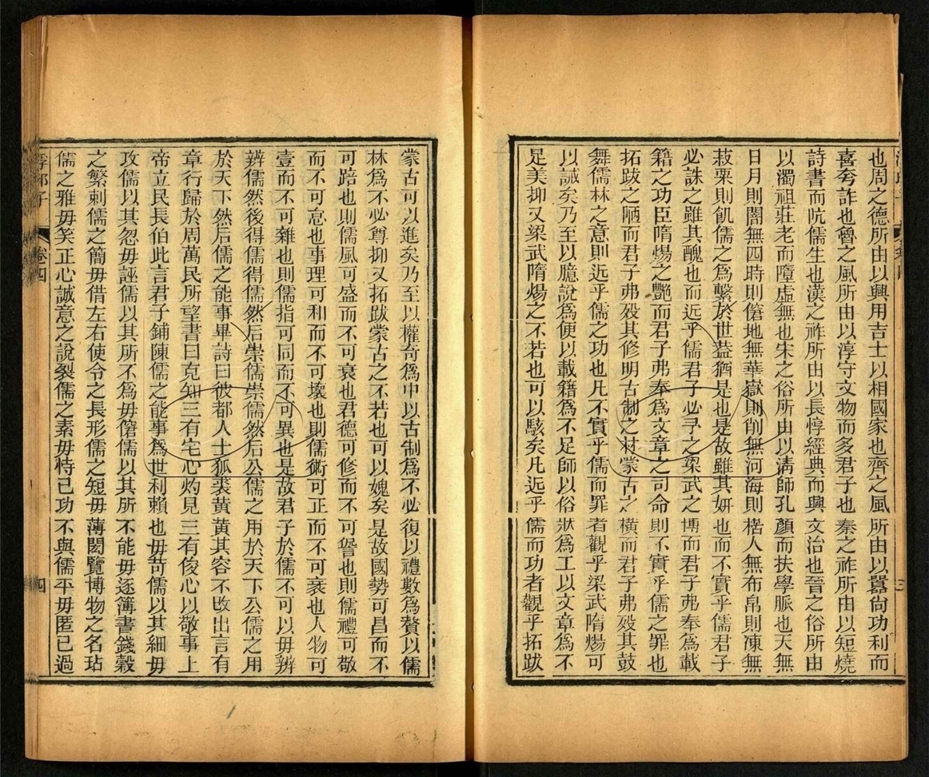 也周之德所由以興用吉士以相國家也齊之風所由以囂尙功利而
喜夸詐也魯之風所由以淳守文物而多君子也秦之祚所由以短燒
詩書而阬儒生也漢之祚所由以長惇經典而興文治也晉之俗所由
以濁祖莊老而隨虛無也宋之俗所由以淸師孔顏而扶學脈也天無
日月則闇無四時則僭地無華嶽則削無河海則楛人無布帛則凍無
菽粟則飢儒之爲繫於世葢猶是也是故雖其妍也而不實乎儒君子
必誅之雖其醜也而近乎儒君子必予之梁武之博而君子弗奉爲載
籍之功臣隋煬之艷而君子弗奉爲文章之司命則不實乎儒之罪也
拓跋之陋而君子弗歿其修明古制之材蒙古之橫而君子弗歿其鼓
舞儒林之意則近乎儒之功也凡不實乎儒而罪者觀乎梁武隋煬可
以誡矣乃至以臆說爲便以載籍爲不足師以俗狀爲工以文章爲不
足美抑又梁武隋煬之不若也可以駭矣凡近乎儒而功者觀乎拓跋
蒙古可以進矣乃至以權奇爲中以古制爲不必復以禮數爲贅以儒
林爲不必尊抑又拓跋蒙古之不若也可以媿矣是故國勢可昌而不
可踣也則儒風可盛而不可衰也君德可修而不可眢也則儒禮可敬
而不可慁也事理可和而不可壞也則儒術可正而不可衺也人物可
壹而不可雜也則儒指可同而不可異也是故君子於儒不可以毋辨
辨儒然後得儒得儒然后崇儒崇儒然后公儒之用於天下公儒之用
於天下然后儒之能事畢詩曰彼都人士狐裘黃黃其容不攺出言有
章行歸於周萬民所望書曰克知三有宅心灼見三有俊心以敬事上
帝立民長伯此言君子鋪陳儒之能事爲世利賴也毋苛儒以其細毋
攻儒以其忽毋誣儒以其所不爲毋僭儒以其所不能毋逐簿書錢穀
之繁剌儒之簡毋借左右使令之長形儒之短毋薄閎覽博物之名玷
儒之雅毋笑正心誠意之說裂儒之素毋恃己功不與儒平毋匿己過
卷四
四